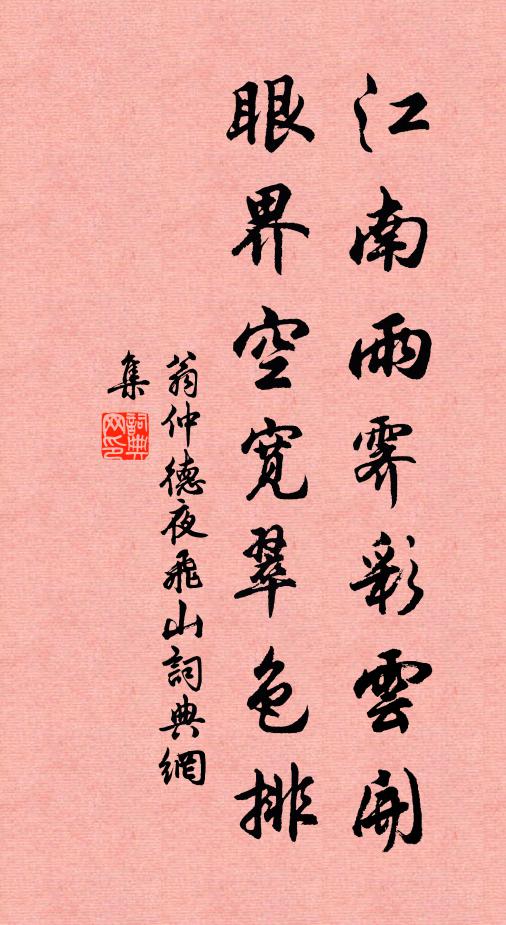 江南雨霽彩雲開
眼界空寬翠色排
翁仲德夜飛山詞典網
集
詞典
网印